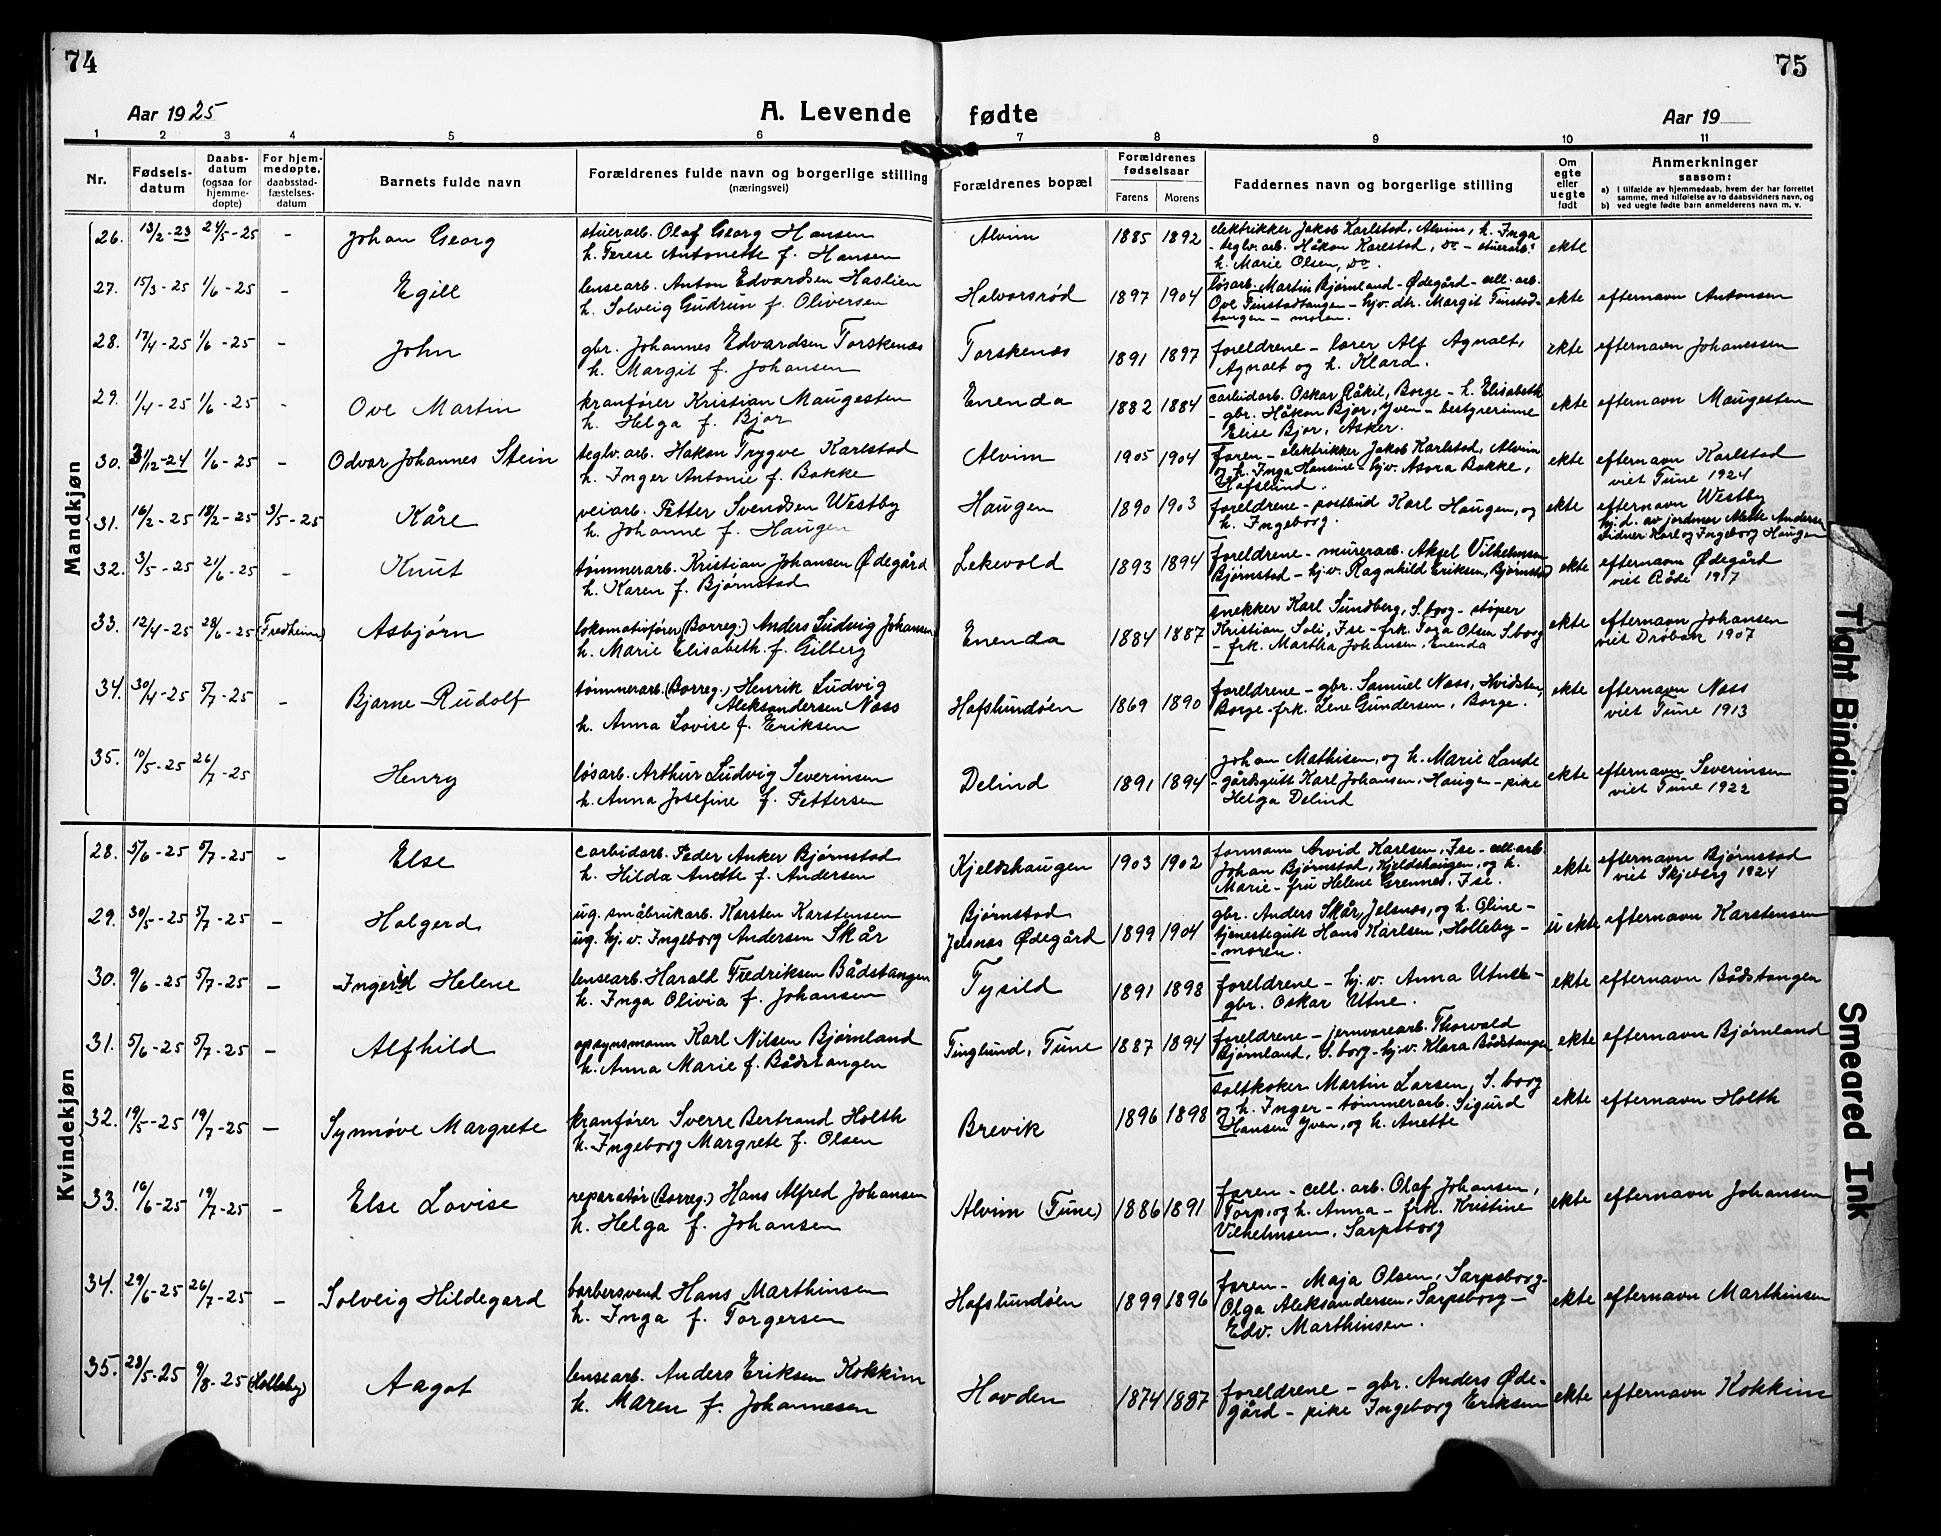 74
75
Aar 1925
A. Levende fødte
Aar 19
1 2 3 4 5 6 7 8 9 10 11
Nr.
Fødsels-
datum
Daabs-
datum
(ogsaa for
hjemme-
døpte)
For hjem-
medøpte,
daabsstad-
fæstelses-
datum
Barnets fulde navn
Forældrenes fulde navn og borgerlige stilling
(næringsvei)
Forældrenes bopæl
Forældrenes
fødselsaar
Farens
Morens
Faddernes navn og borgerlige stilling
Om
egte
eller
uegte
født
Anmerkninger
saasom:
a) I tilfælde av hjemmedaab, hvem der har forrettet
samme, med tilføielse av to daabsvidners navn, og
b) ved uegte fødte barn anmelderens navn m. v.
Mandkjøn
26. 13/2-23 24/5-25 - Johan Georg
stuerarb. Olaf Georg Hansen
h. Terese Antonette f. Hansen
Alvim 1885 1892
elektrikker Jakob Karlstad, Alvim, h. Inga
- teglv. arb. Håkon Karlstad, do - stuerarb.
h. Marie Olsen, do.
ekte
27. 15/3-25 1/6-25 - Egill
lensearb. Anton Edvardsen Haslien
h. Solveig Gudrun f. Oliversen
Halvorsrød 1897 1904
løsarb. Martin Bjørnland - Ødegård - cell. arb.
Ove Finstadtangen - hjv. dtr. Margit Finstad-
tangen - moren.
ekte efternavn Antonsen
28. 17/4-25 1/6-25 - John
gbr. Johannes Edvardsen Torskenæs
h. Margit f. Johansen
Torskenæs 1891 1897
foreldrene - lærer Alf Agnalt,
Agnalt og h. Klara.
ekte efternavn Johanessen
29. 1/4-25 1/6-25 - Ove Martin
kranfører Kristian Maugesten
h. Helga f. Bjor
Enenda 1882 1884
carbidarb. Oskar Råkil, Borge - h. Elisabeth
- gbr. Håkon Bjor, Yven - bestyrerinne
Elise Bjor, Asker.
ekte efternavn Maugesten
30. 31/12-24 1/6-25 - Odvar Johannes Stein
teglv. arb. Hakon Trygve Karlstad
h. Inger Antonie f. Bakke
Alvim 1905 1904
faren - elektrikker Jakob Karlstad, Alvim
og h. Inga Hansine - hjv. Asora Bakke,
Hafslund.
ekte efternavn Karlstad
viet Tune 1924
31. 16/2-25 18/2-25 3/5-25 Kåre
veiarb. Petter Svendsen Westby
h. Johanne f. Haugen
Haugen 1890 1903
foreldrene - postbud Karl Haugen, og
h. Ingeborg.
ekte efternavn Westby
hj.d. av jordmor Mette Andersen
vidner Karl og Ingeborg Haugen
32. 3/5-25 21/6-25 - Knut
tømmerarb. Kristian Johansen Ødegård
h. Karen f. Bjørnstad
Lekevold 1893 1894
foreldrene - murerarb. Aksel Vilhelmsen
Bjørnstad - hj.v. Ragnhild Eriksen, Bjørnstad
ekte efternavn Ødegård
viet Råde 1917
33. 12/4-25 28/6-25 (Fredheim) Asbjørn
lokomotivfører (Borreg.) Anders Ludvig Johansen
h. Marie Elisabeth f. Gilberg
Enenda 1884 1887
snekker Karl Sundberg, S.borg - støper
Kristian Soli, Ise - frk. Tora Olsen S.borg
- frk. Martha Johansen, Enenda
ekte efternavn Johansen
viet Drøbak 1907
34. 30/4-25 5/7-25 - Bjarne Rudolf
tømmerarb. (Borreg.) Henrik Ludvig
Aleksandersen Næss
h. Anna Lovise f. Eriksen
Hafslundøen 1869 1890
foreldrene - gbr. Samuel Næss, Hvidsten,
Borge - frk. Lene Gundersen, Borge.
ekte efternavn Næss
viet Tune 1913
35. 10/5-25 26/7-25 Henry
løsarb. Arthur Ludvig Severinsen
h. Anna Josefine f. Pettersen
Delind 1891 1894
Johan Mathisen, og h. Marie Lande
- gårdsgutt Karl Johansen, Haugen - pike
Helga Delind
ekte efternavn Severinsen
viet Tune 1922
Kvindekjøn
28. 5/6-25 5/7-25 - Else
carbidarb. Peder Anker Bjørnstad
h. Hilda Anette f. Andersen
Kjeldshaugen 1903 1902
formann Arvid Karlsen, Ise - cell. arb.
Johan Bjørnstad, Kjeldshaugen, og h.
Marie - fru Helene Grennes, Ise.
ekte efternavn Bjørnstad
viet Skjeberg 1924
29. 30/5-25 5/7-25 - Halgerd
ug. småbrukarb. Karsten Karstensen
ug. hj.v. Ingeborg Andersen Skår
Bjørnstad
Jelsnæs Ødegård 1899 1904
gbr. Anders Skår, Jelsnæs, og h. Oline -
tjenestegutt Hans Karlsen, Holleby -
- moren.
uekte efternavn Karstensen
30. 9/6-25 5/7-25 - Ingerid Helene
lensearb. Harald Fredriksen Bådstangen
h. Inga Olivia f. Johansen
Tysild 1891 1898
foreldrene - hj.v. Anna Utne -
gbr. Oskar Utne.
ekte efternavn Bådstangen
31. 5/6-25 5/7-25 - Alfhild
opsynsmann Karl Nilsen Bjørnland
h. Anna Marie f. Bådstangen
Tinglund, Tune 1887 1894
foreldrene - jernvarearb. Thorvald
Bjørnland, S.borg - hj.v. Klara Bådstangen
ekte efternavn Bjørnland
32. 19/5-25 19/7-25 - Synnøve Margrete
kranfører Sverre Bertrand Holth
h. Ingeborg Margrete f. Olsen
Brevik 1896 1898
saltkoker Martin Larsen, S.borg
og h. Inger - tømmerarb. Sigurd
Hansen Yven, og h. Anette
ekte efternavn Holth
33. 16/6-25 19/7-25 - Else Lovise
reparatør (Borreg.) Hans Alfred Johansen
h. Helga f. Johansen
Alvim (Tune) 1886 1891
faren - cell. arb. Olaf Johansen,
Torp, og h. Anna - frk. Kristine
Vilhelmsen, Sarpsborg
ekte efternavn Johansen
34. 29/6-25 26/7-25 - Solveig Hildegard
barbersvend Hans Marthinsen
h. Inga f. Torgersen
Hafslundøen 1899 1896
faren - Maja Olsen, Sarpsborg -
Olga Aleksandersen, Sarpsborg -
Edv. Marthinsen.
ekte efternavn Marthinsen
35. 23/5-25 9/8-25 (Holleby) Aagot
lensearb. Anders Eriksen Kokkim
h. Maren f. Johannesen
Hovden 1874 1887
foreldrene - gbr. Anders Øde-
gård - pike Ingeborg Eriksen
ekte efternavn Kokkim
Tight Binding
Smeared Ink